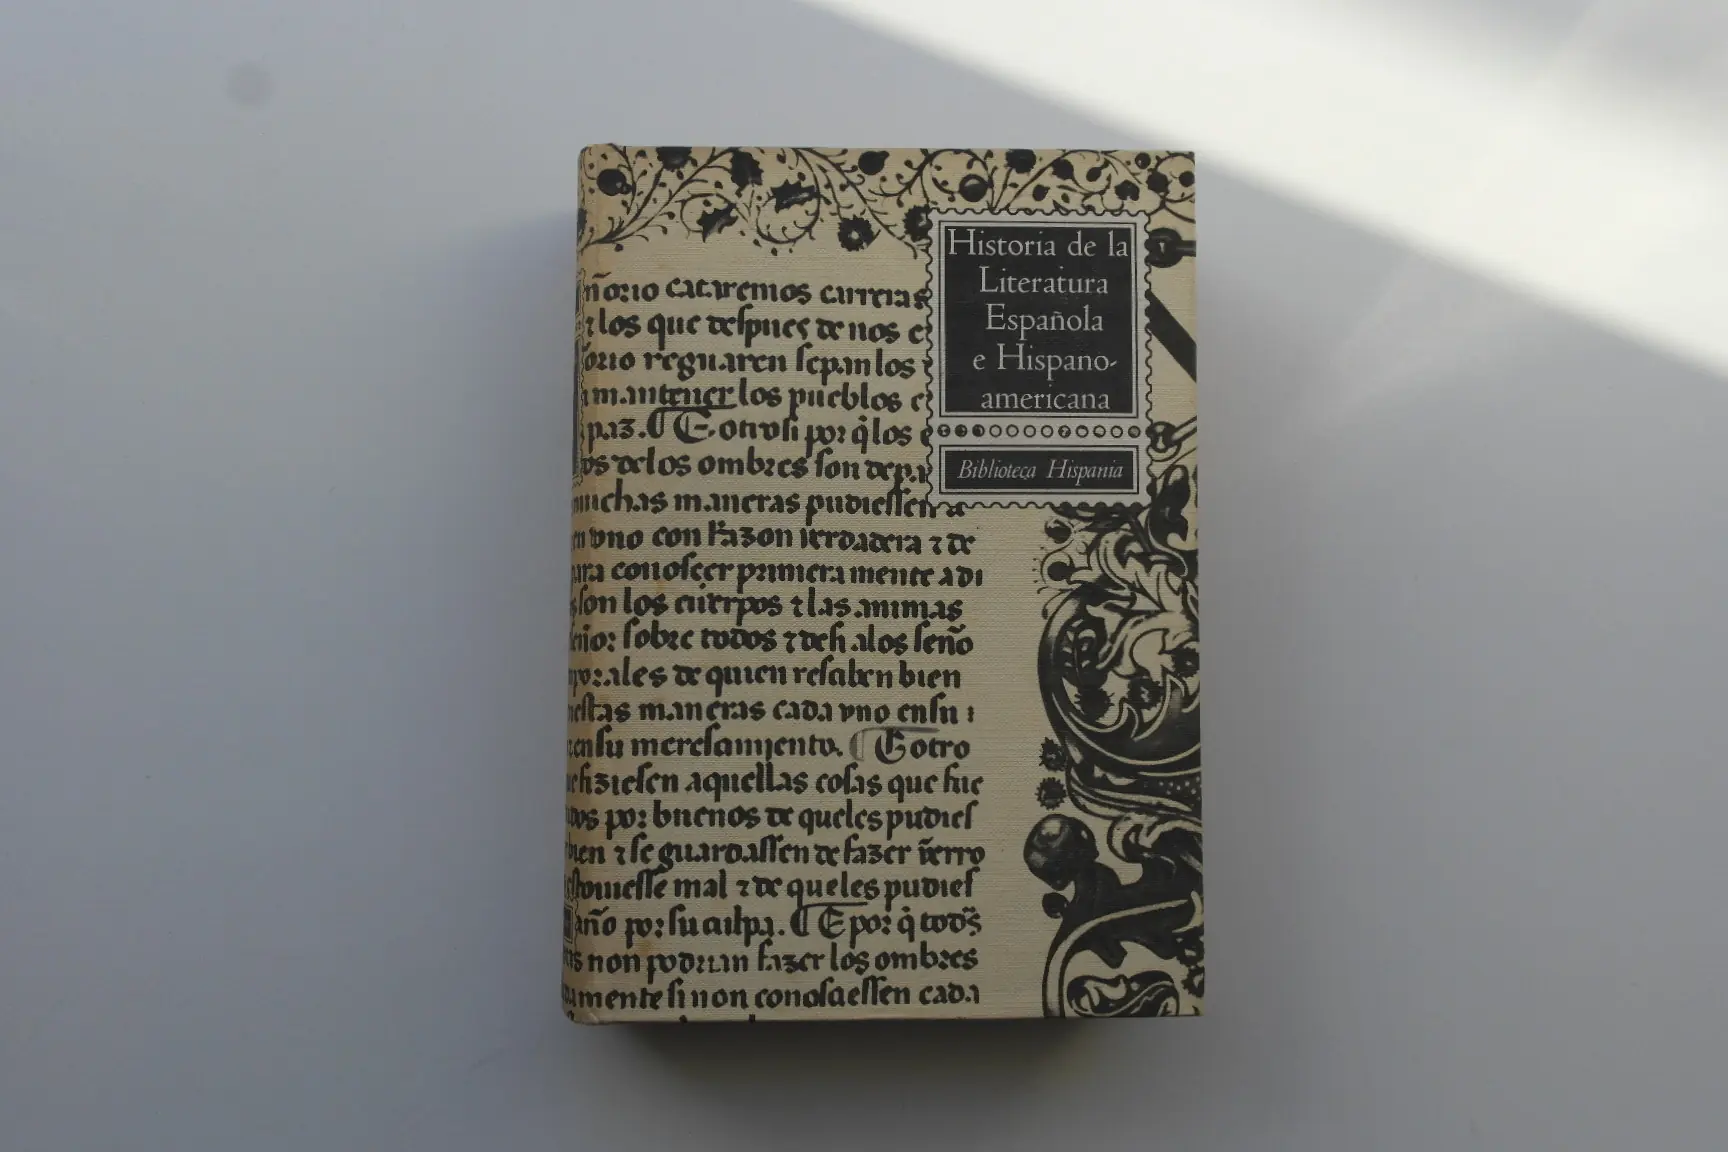 Historia de la
Literatura
Española
e Hispano-
americana
Biblioteca Hispania
ñorio cataremos carreras
⁊ los que despues de nos e
ſorio regnaren ſepan los
mantener los pueblos e
paz. E otroſi por q̃ los e
delos ombres ſon depa
muchas maneras pudieſſen
en vno con razon verdadera ⁊ de
para conoſcer primera mente a di
ſon los cuerpos ⁊ las animas
ſobre todos ⁊ deſi alos ſeño
porales de quien reſaben bien
maneras cada vno en ſu
en ſu mereſamiento. E otro
fizieſen aquellas coſas que fue
por buenos de queles pudieſ
bien ⁊ ſe guardaſſen de fazer yerro
mal ⁊ de queles pudieſ
año por ſu culpa. E por q̃ todos
non podrian fazer los ombres
mente ſi non conoſaeſſen cada